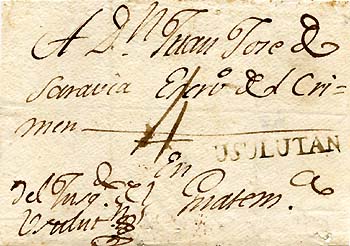 A Dn. Juan Jose de
Saravia Escno. de el Cri-
men
4
USULUTAN
En
Guatema.
del Jusgdo. de
Usulutn